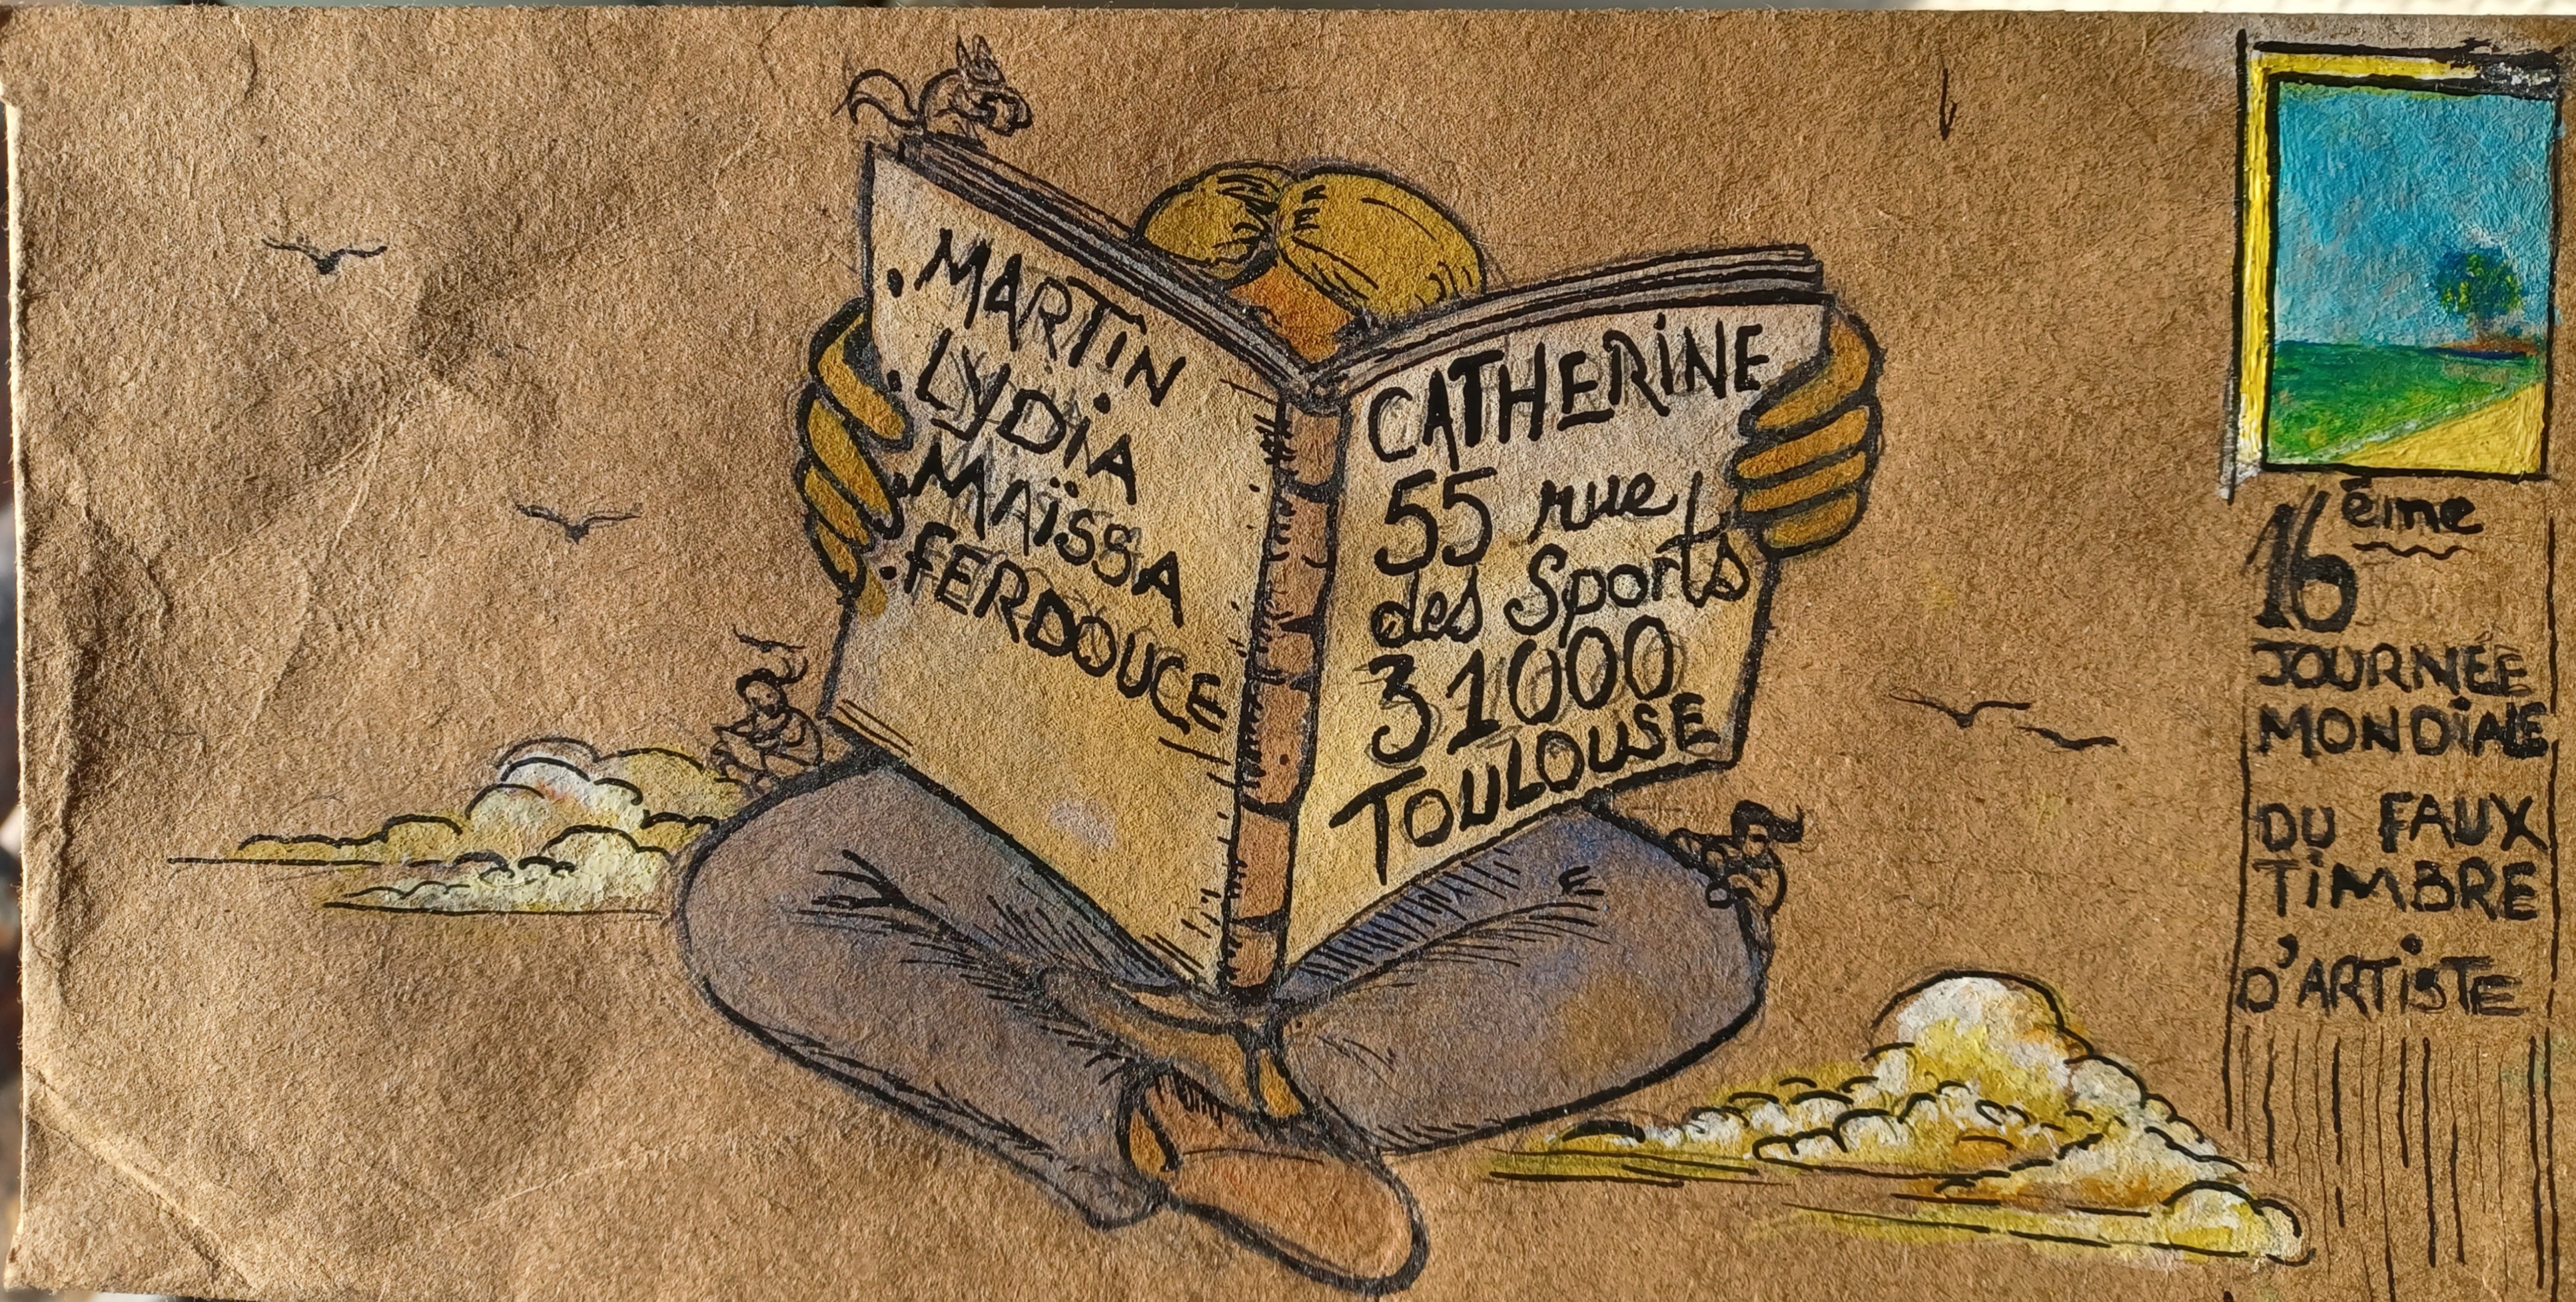 . MARTIN
. LYDIA
. MAÏSSA
. FERDOUCE
CATHERINE
55 rue
des Sports
31000
TOULOUSE
16ème
JOURNÉE
MONDIALE
DU FAUX
TIMBRE
D'ARTISTE